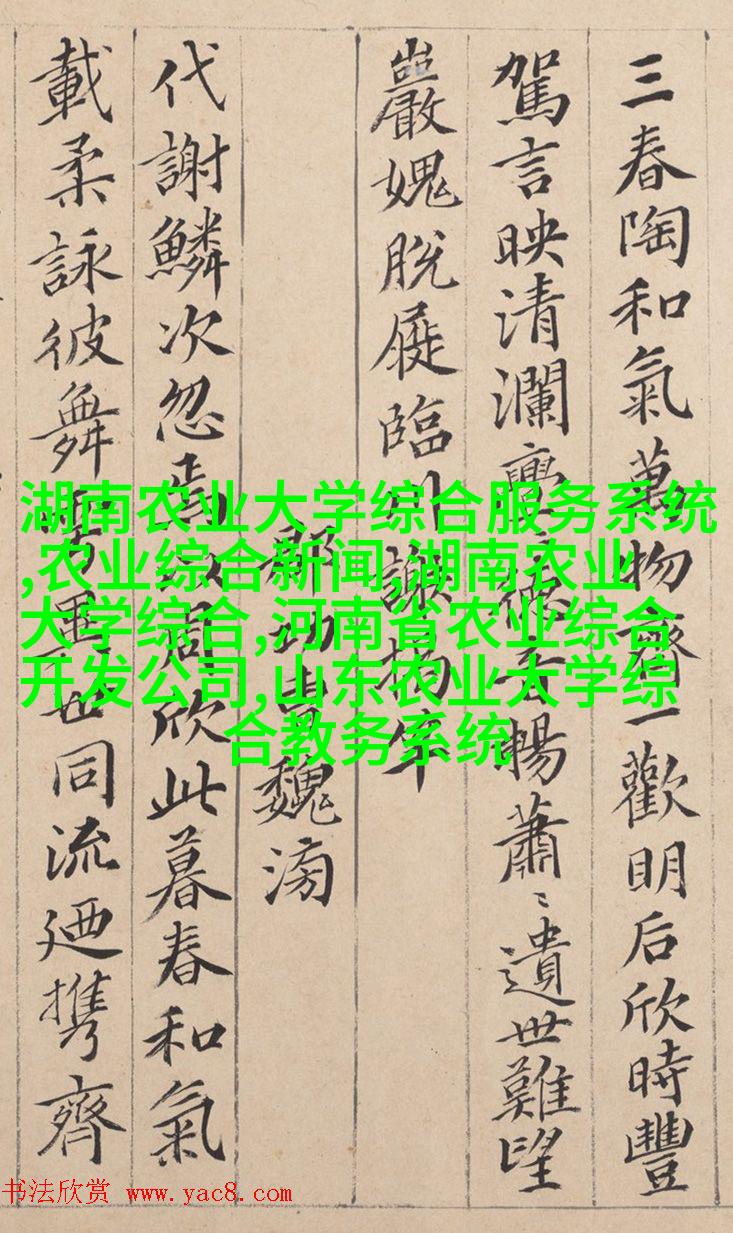 三春陶和氣萬物齊一歡明后欣時豐
駕言映清瀾亹亹德音暢蕭〻遺世難望
巖媿脫屣臨川謝揭竿
郡功曹魏滂
代謝鱗次忽焉以周欣此暮春和氣
載柔詠彼舞雩異世同流迺携齊
湖南农业大学综合服务系统
,农业综合新闻,湖南农业
大学综合,河南省农业综合
开发公司,山东农业大学综
合教务系统
书法欣赏 www.yac8.com